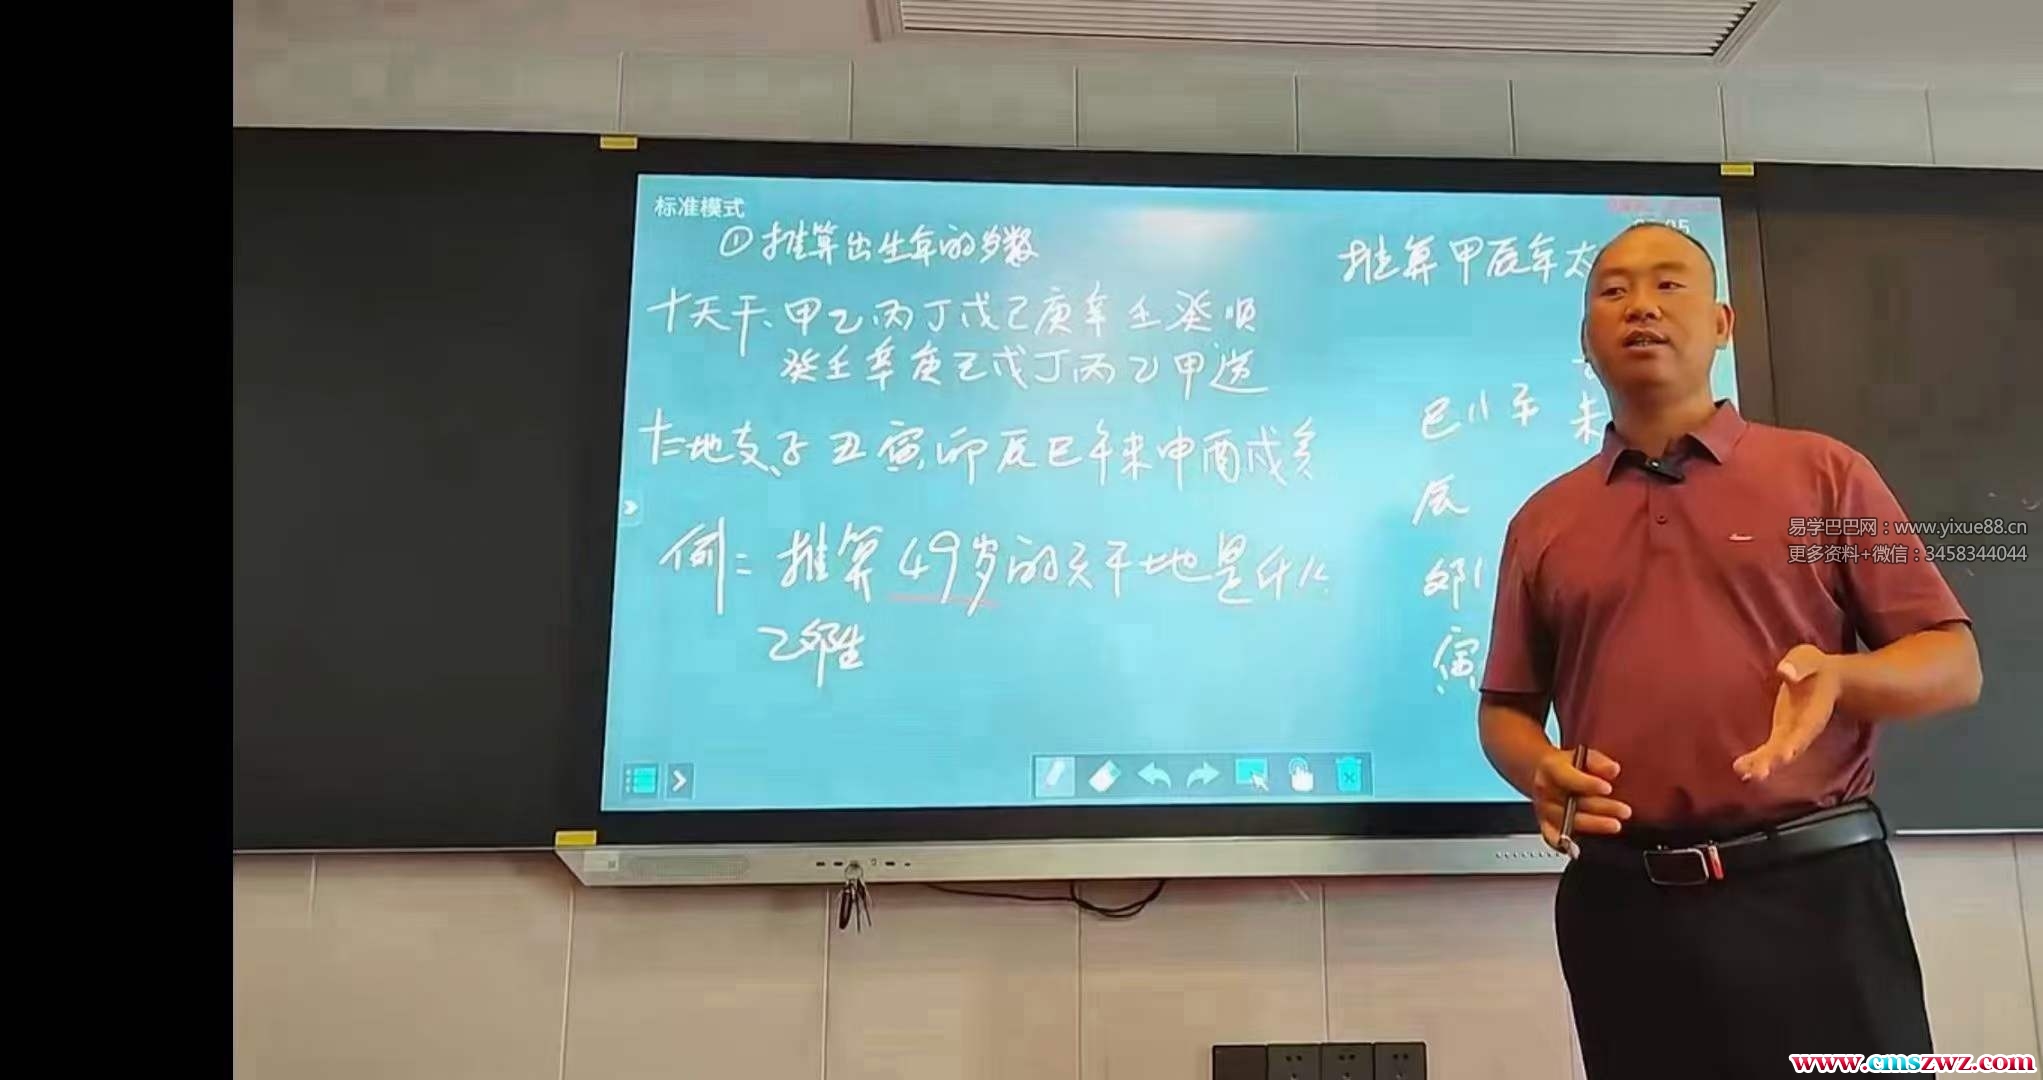 标准模式
①推算出生年的岁数
十天干、甲乙丙丁戊己庚辛壬癸顺
癸壬辛庚己戊丁丙乙甲逆
十二地支、子丑寅卯辰巳午未申酉戌亥
例：推算49岁的天干地是什么
乙卯生
推算甲辰年太
巳小午未
辰
卯
寅
易学巴巴网：www.yixue88.cn
更多资料+微信：3458344044
www.cmszwz.com